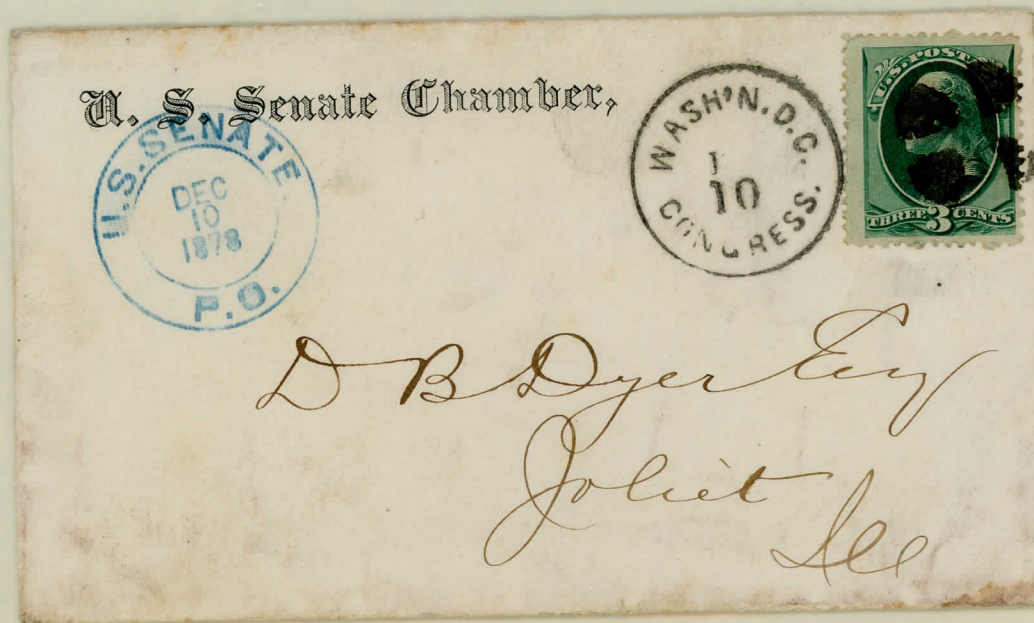 U. S. Senate Chamber,
U.S. SENATE
DEC
10
1878
P.O.
WASH'N. D.C.
10
CONGRESS.
U.S. POST
THREE 3 CENTS
D B Dyer Esq
Joliet
Ill